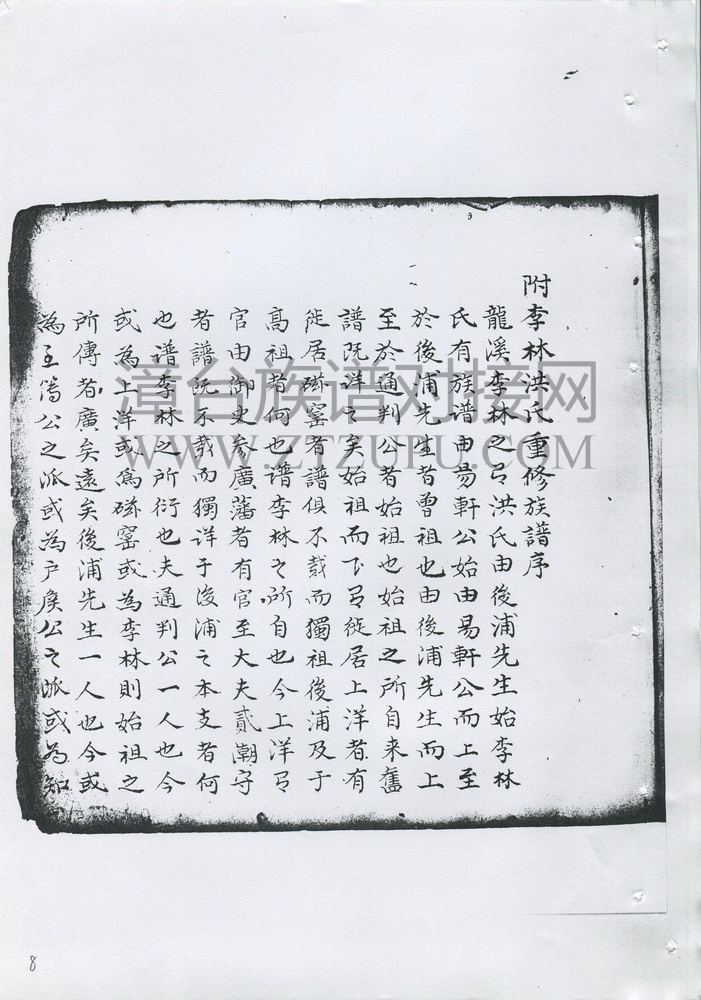 附李林洪氏重修族譜序
龍溪李林之有洪氏由後浦先生始李林
氏有族谱由易軒公始由易軒公而上至
於後浦先生者曾祖也由後浦先生而上
至於通判公者始祖也始祖之所自来舊
譜既详之矣始祖而下有徙居上洋者有
徙居磁窑者譜俱不载而獨祖後浦及于
髙祖者何也谱李林之所自也今上洋有
官由御史参廣藩者有官至大夫貳潮守
者譜既不载而獨详于後浦之本支者何
也谱李林之所衍也夫通判公一人也今
或为上洋或爲磁窑或为李林則始祖之
所傳者廣矣遠矣後浦先生一人也今或
为王僐公之派或为户矦公之派或为知
道台族谱对接网
WWW.ZTZUPU.COM
8